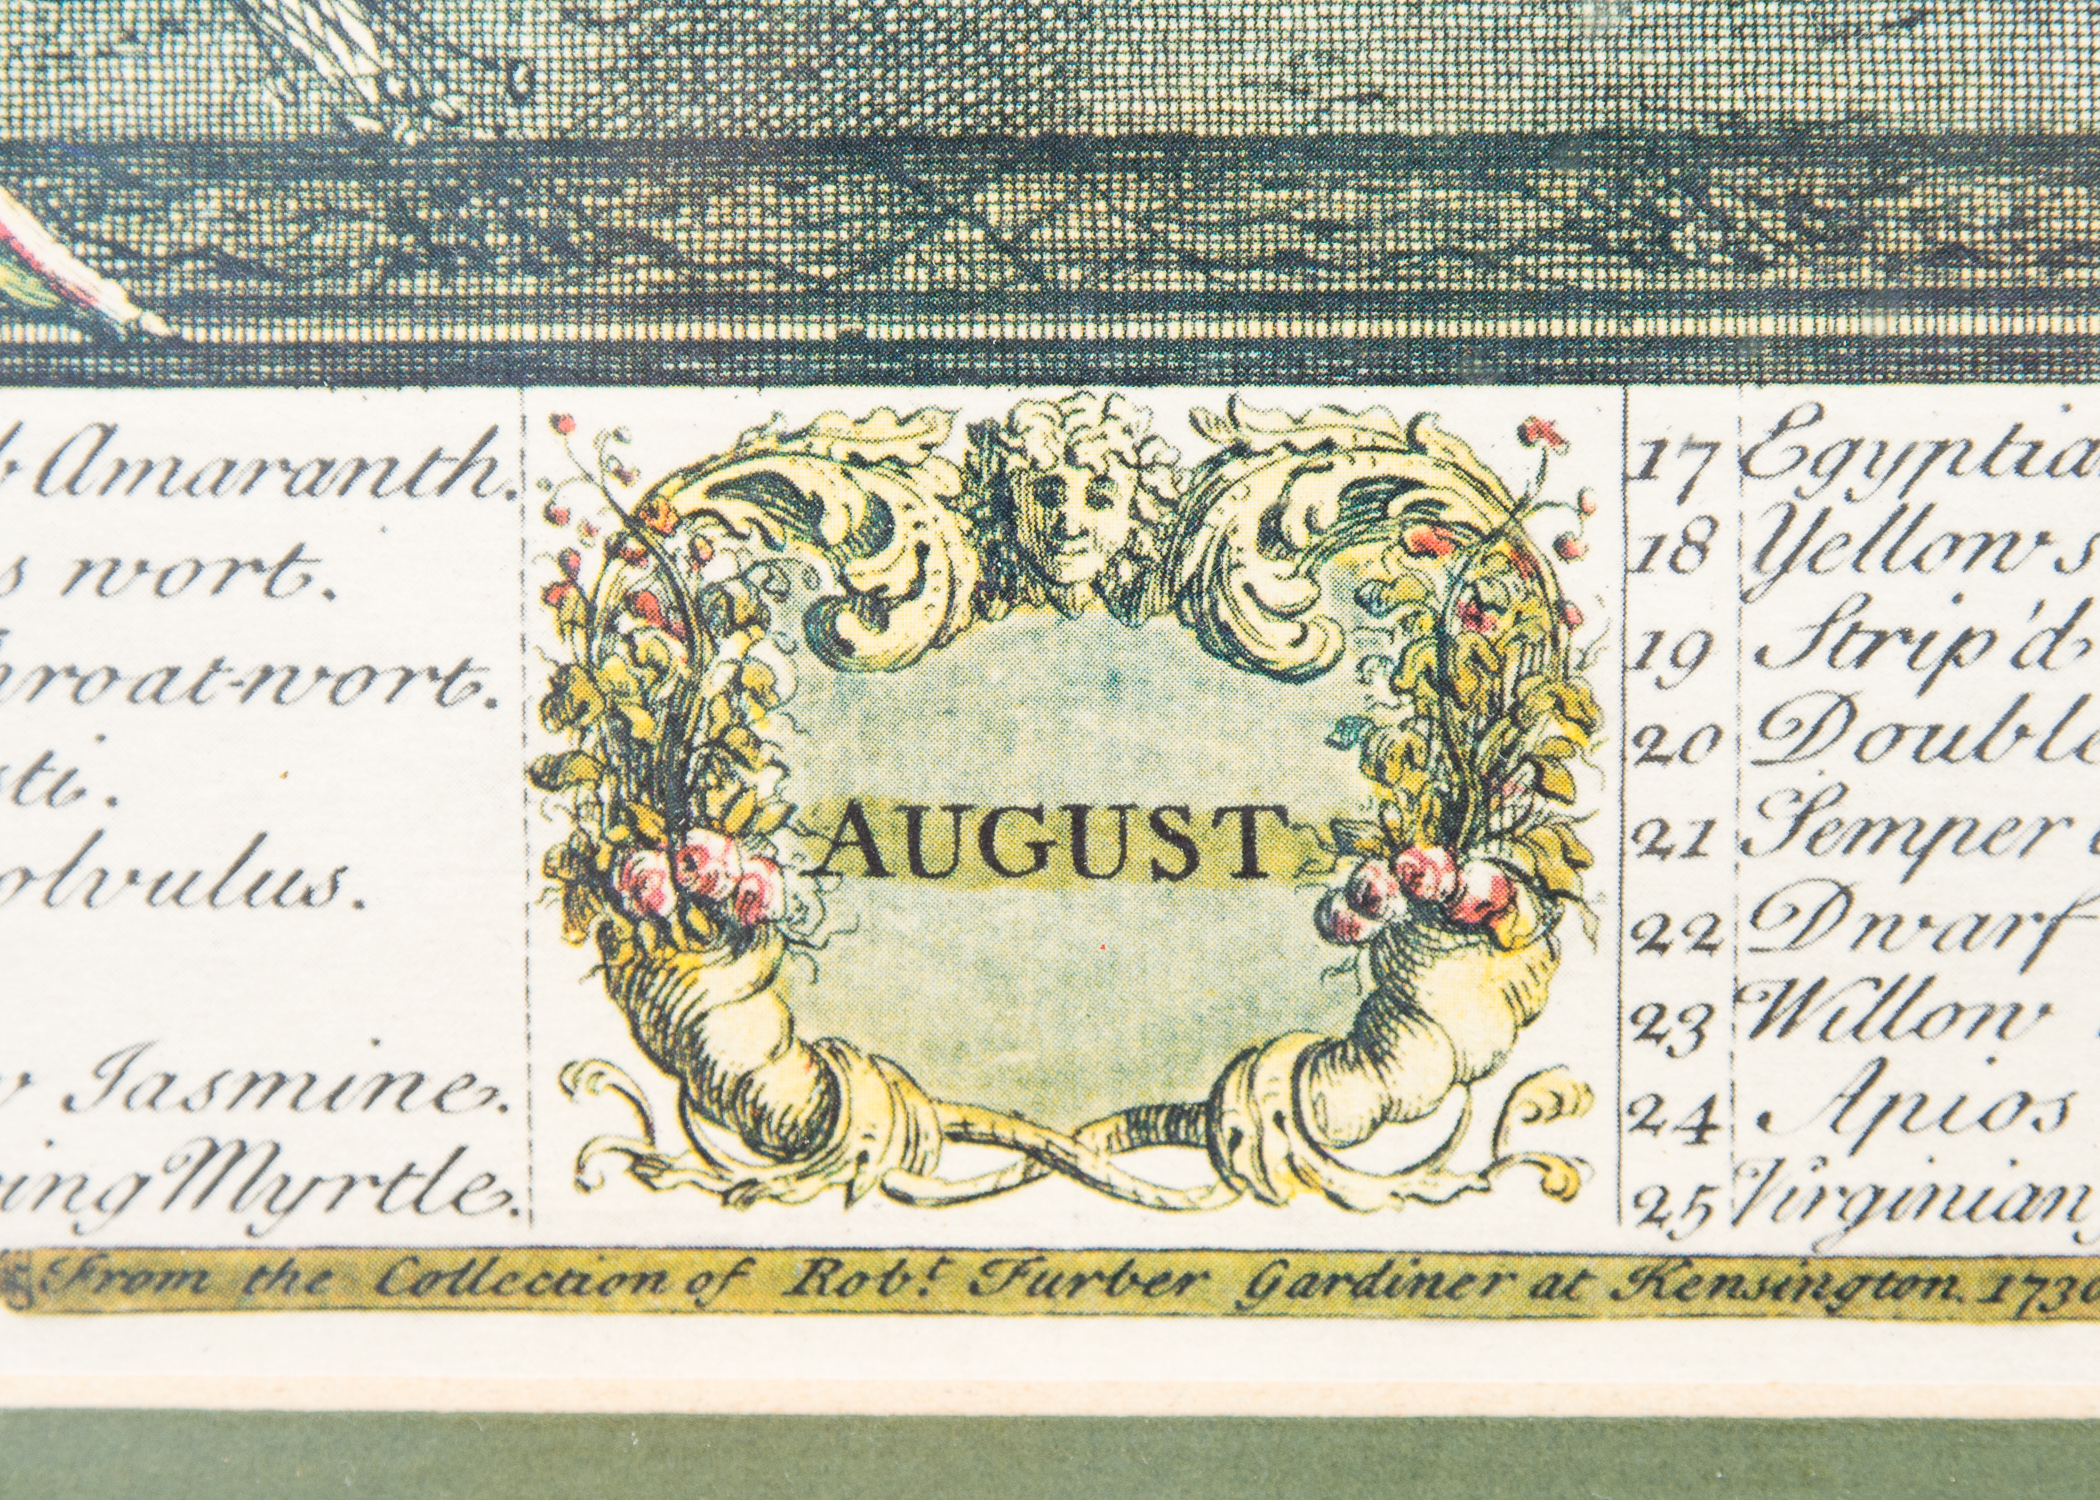 Amaranth.
wort.
throat-wort.
Jasmine.
Myrtle.
AUGUST
17 Egyptia
18 Yellow s
19 Strip'd
20 Double
21 Semper
22 Dwarf
23 Willow
24 Apios
25 Virginian
From the Collection of Robt. Furber Gardiner at Kensington. 173